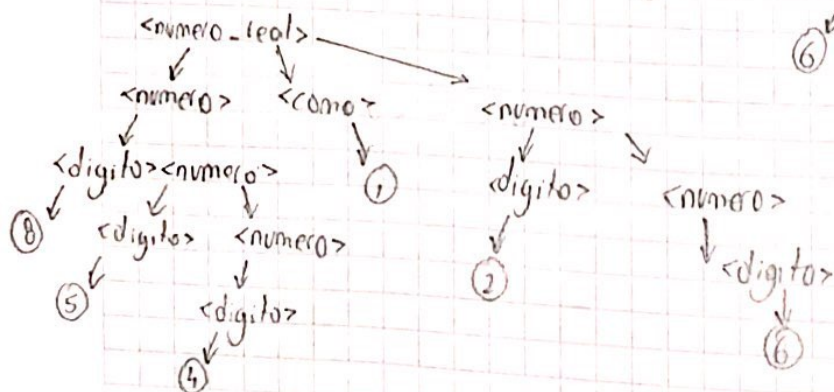 <numero_real>
6
<numero> <como> <numero>
<digito><numero> , <digito> <numero>
8 <digito> <numero> 2 <digito>
5 <digito> 6
4